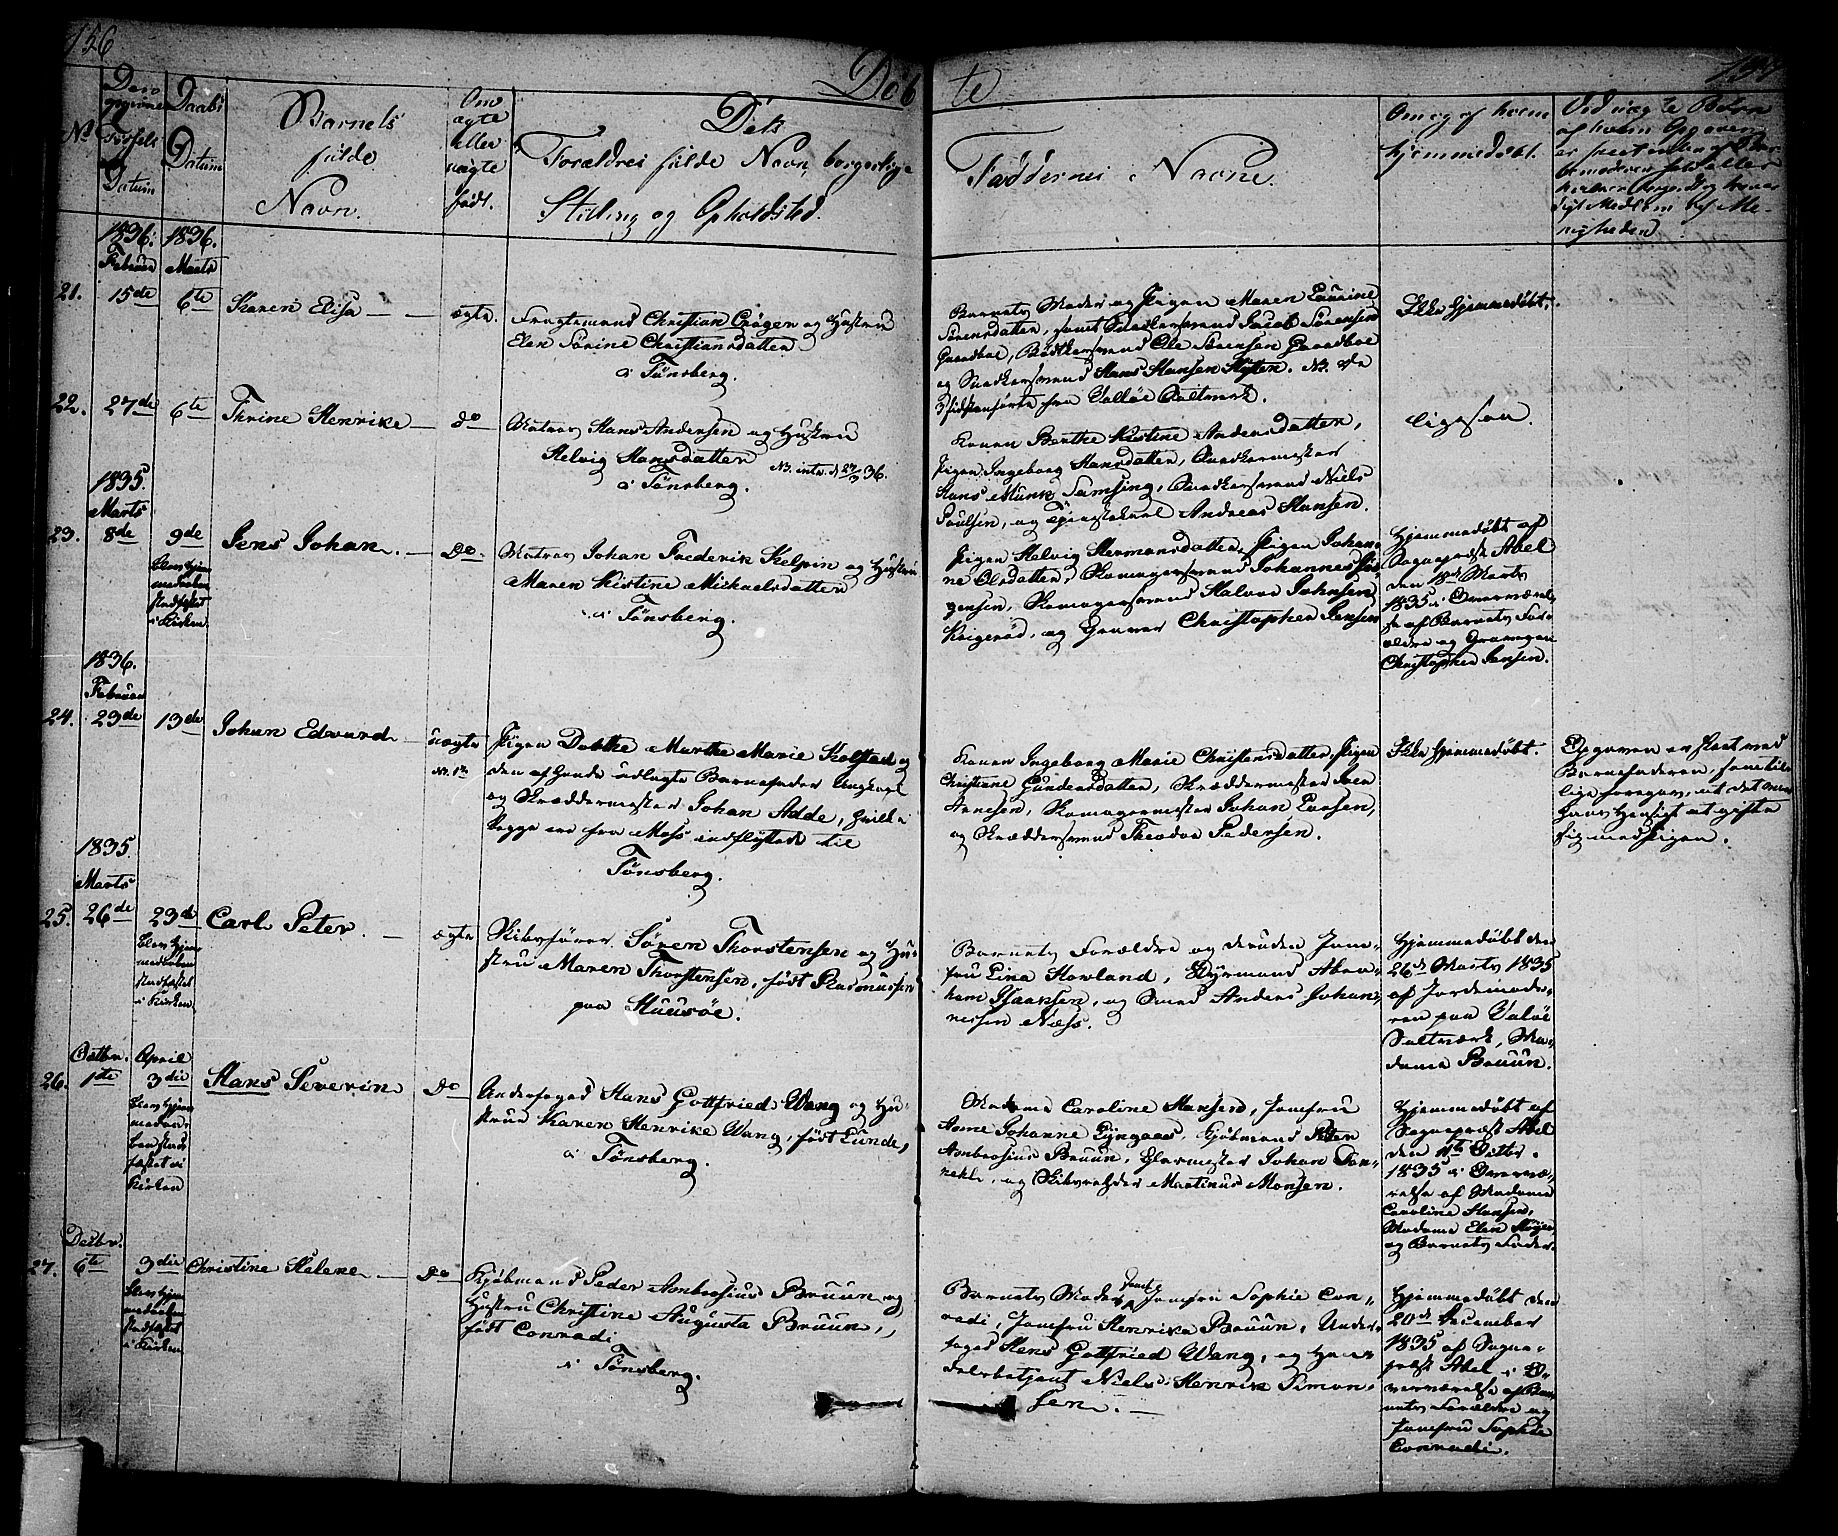 156
Døb
te
157
No
Den
Fødsels
Datum
Daabs
Datum
Barnets
fulde
Navn.
Om
ægte
eller
uægte
født.
Dets
Forældres fulde Navn, borgerlige
Stilling og Opholdsted.
Faddernes Navne.
Om og af hvem
hjemmedøbt.
1836.
Februar
1836.
Marts
21.
15de
6te
Karen Elisa
ægte.
Fragtemand Christian Crøger og Hustru
Elen Sørine Christiansdatter
i Tønsberg.
Barnets Moder og Pigen Maren Laurine
Sørensdatter, samt Snedkersvend Jacob Sørensen
Gaardboe, Bødkersvend Ole Sørensen Gaardboe
og Snedkersvend Hans Hansen. NB. de
3 sidstanførte fra Valløe Saltværk.
Ikke hjemmedøbt.
22.
27de
6te
Thrine Henrike
do
Matros Hans Andersen og Hustru
Helvig Hansdatter
i Tønsberg.
Konen Berthe Kistine Andersdatter,
Pigen Ingeborg Hansdatter, Snedkermester
Hans Munk Samsing, Snedkersvend Niels
Poulsen, og Tjenestekarl Andreas Hansen.
ligesaa.
1835.
Marts
23.
8de
9de
Blev hjem-
medøben
stadfæstet
i Kirken.
Jens Johan.
Do.
Matros Johan Frederik Kelpin og Hustru
Maren Kistine Michaelsdatter
i Tønsberg.
Pigen Helvig Hermansdatter, Pigen Johan-
ne Olsdatter, Skomagersvend Johannes Jør-
gensen, Skomagersvend Halvor Johnsen
og Graver Christopher Jensen
Hjemmedøbt af
Sognepræst Abel
den 18de Marts
1835 i Overværel-
se af Barnets For-
ældre og Graveren
Christopher Jensen.
1836.
Februar
24.
23de
13de
Johan Edvard
uægte
NB. 1te
Pigen Dorthe Marthe Marie Kolstad og
den af hende udlagte Barnefader Ungkarl
og Skræddermester Johan Adde, hvilke
begge ere fra Moss indflyttede til
Tønsberg.
Konen Ingeborg Marie Christensdatter, Pigen
Christiane Gundersdatter, Skræddermester Iver
Arnesen, Skomagermester Johan Larsen,
og Skræddersvend Theodor Pedersen.
Ikke hjemmedøbt.
Opgaven er skeet ved
Barnefaderen, som til-
lige foregav, at det var
hans Hensigt at gifte
sig med Pigen.
1835
Marts
25.
26de
23de
Blev hjem-
medøben
stadfæstet
i Kirken.
Carl Peter.
ægte
Skibsfører Søren Thorstensen og Hu-
stru Maren Thorstensen, født Rasmussen
paa Huusøe.
Barnets Forældre og desuden Jom-
fru Lina Howland, Styrmand Abra-
ham Isaaksen, og Smed Anders Johan-
nessen Næss.
Hjemmedøbt den
26de Marts 1835
af Jordemode-
ren paa Valøe
Saltværk, Ma-
dame Bruun.
Octbr.
April
26.
1te
3die
Blev hjem-
medøben
stad-
fæstet i
Kirken
Hans Severin
Do
Underfoged Hans Gottfried Wang og Hu-
strue Karen Henrike Wang, født Lunde,
i Tønsberg.
Madame Caroline Hansen, Jomfru
Anne Johanne Lyngaas, Kjøbmand Peter
Ambrosius Bruun, Glarmester Johan
og Skibsrheder Martinus Monsen.
Hjemmedøbt af
Sognepræst Abel
den 1te Octbr.
1835 i Overvæ-
relse af Madame
Caroline Hansen,
Madame Elen
og Barnets Fader
Decbr.
27.
6te
3die
Blev hjem-
medøben
stadfæstet
i Kirken
Christine Helene
Do
Kjøbmand Peder Ambrosius Bruun og
Hustru Christine Augusta Bruun,
født Conradi
i Tønsberg.
Barnets Moder samt Jomfru Sophie Con-
radi, Jomfru Henrike Bruun, Under-
foged Hans Gottfried Wang, og Han-
delsbetjent Niels Henrik Simon-
sen.
Hjemmedøbt den
20de December
1835 af Sogne-
præst Abel i O-
verværelse af Bar-
nets Forældre og
Jomfru Sophie
Conradi.